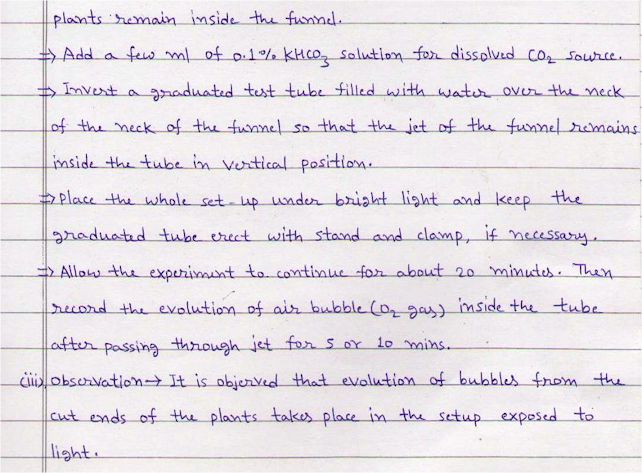 plants remain inside the funnel.
⇒ Add a few ml of 0.1% KHCO₃ solution for dissolved CO₂ source.
⇒ Invert a graduated test tube filled with water over the neck
of the neck of the funnel so that the jet of the funnel remains
inside the tube in vertical position.
⇒ Place the whole set-up under bright light and keep the
graduated tube erect with stand and clamp, if necessary.
⇒ Allow the experiment to continue for about 20 minutes. Then
record the evolution of air bubble (O₂ gas) inside the tube
after passing through jet for 5 or 10 mins.
(iii). Observation → It is objerved that evolution of bubbles from the
cut ends of the plants takes place in the setup exposed to
light.